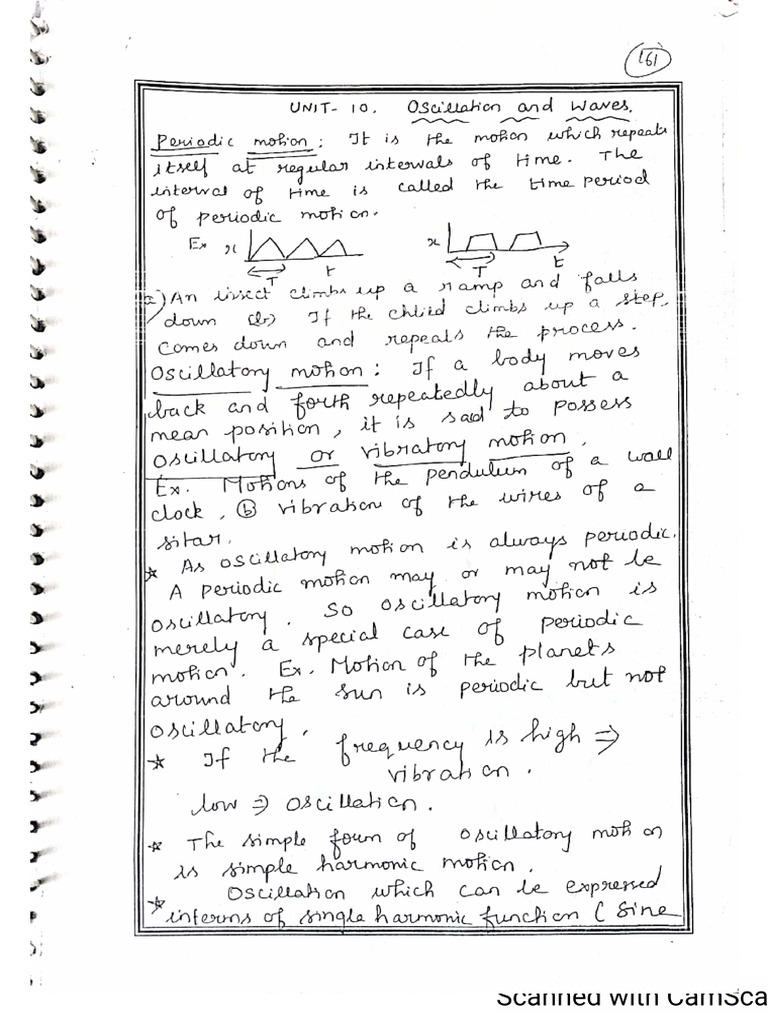 161
UNIT- 10. Oscillation and Waves.
Periodic motion: It is the motion which repeats
itself at regular intervals of time. The
interval of time is called the time period
of periodic motion.
Ex x T t x T t
a) An insect climbs up a ramp and falls
down (b) If the chlied climbs up a step,
comes down and repeats the process.
Oscillatory motion: If a body moves
back and forth repeatedly about a
mean position, it is said to possess
oscillatory or vibratory motion.
Ex. Motions of the pendulum of a wall
clock, (b) vibration of the wires of a
sitar.
* As oscillatory motion is always periodic.
A periodic motion may or may not be
oscillatory. So oscillatory motion is
merely a special case of periodic
motion. Ex. Motion of the planets
around the sun is periodic but not
oscillatory.
* If the frequency is high ⇒
vibration.
low ⇒ oscillation.
* The simple form of oscillatory motion
is simple harmonic motion.
* Oscillation which can be expressed
interms of single harmonic function (sine
Scanned with CamSca